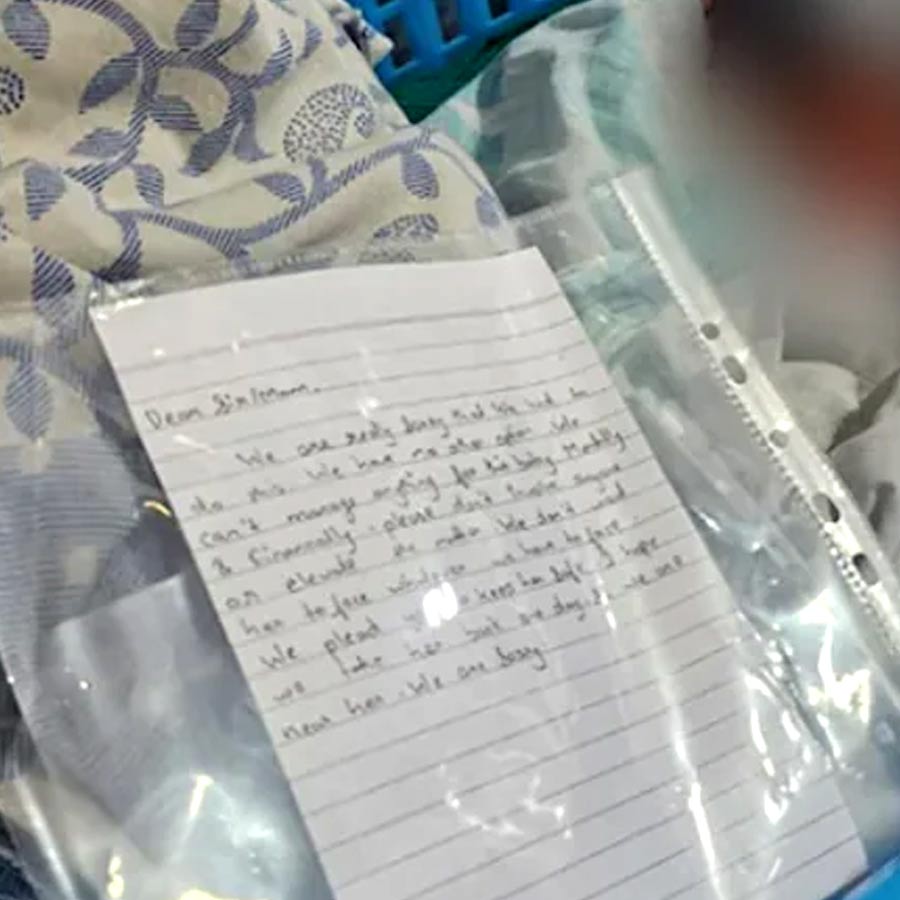 Dear Sir/Mam,
We are really sorry that we had to
do this. We have no other option. We
can't manage anything for this baby Mentally
& financially. please don't
or elevate the matter. We don't want
her to face whatever we have to face.
We plead to keep her safe I hope
we take her back one day. & we are
near her. We are sorry